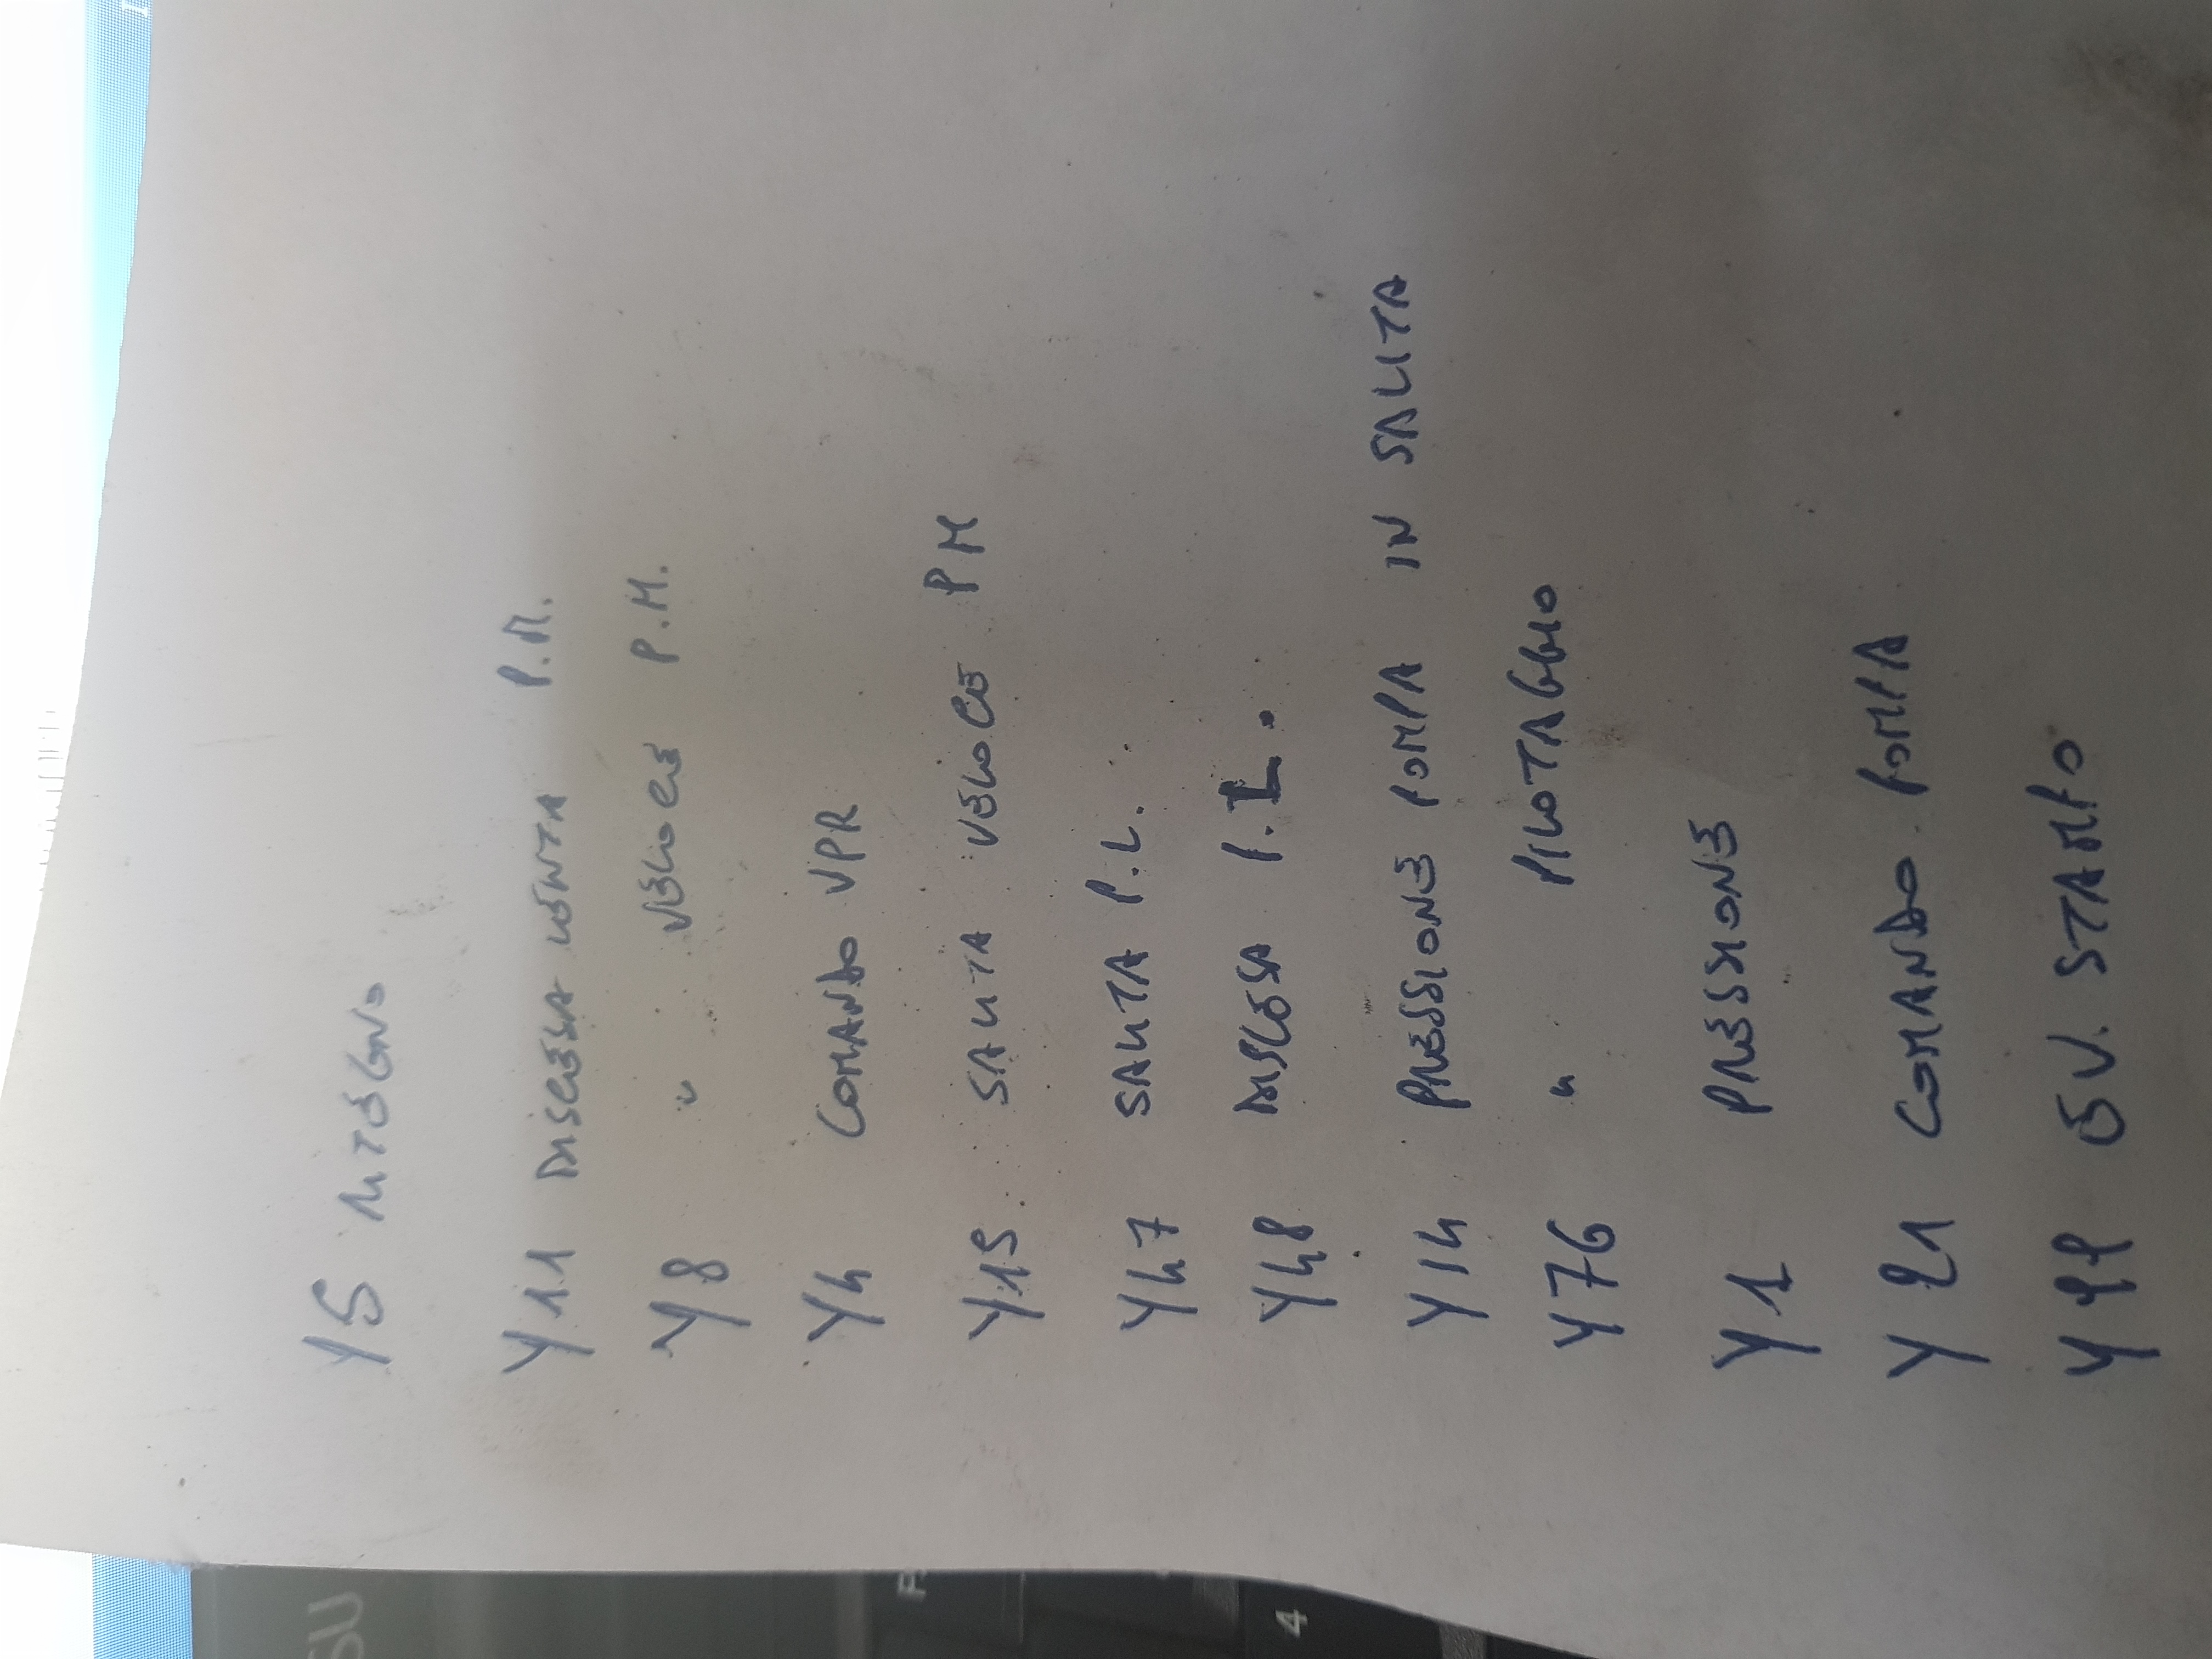 Y5 RITEGNO
Y11 DISCESA LENTA P.M.
Y8 " VELOCE P.M.
Y4 COMANDO VPR
Y15 SALITA VELOCE PM
Y47 SALITA P.L.
Y48 DISCESA P.L.
Y14 PRESSIONE POMPA IN SALITA
Y76 " PILOTAGGIO
Y1 PRESSIONE
Y21 COMANDO POMPA
Y EV. STAMPO
4